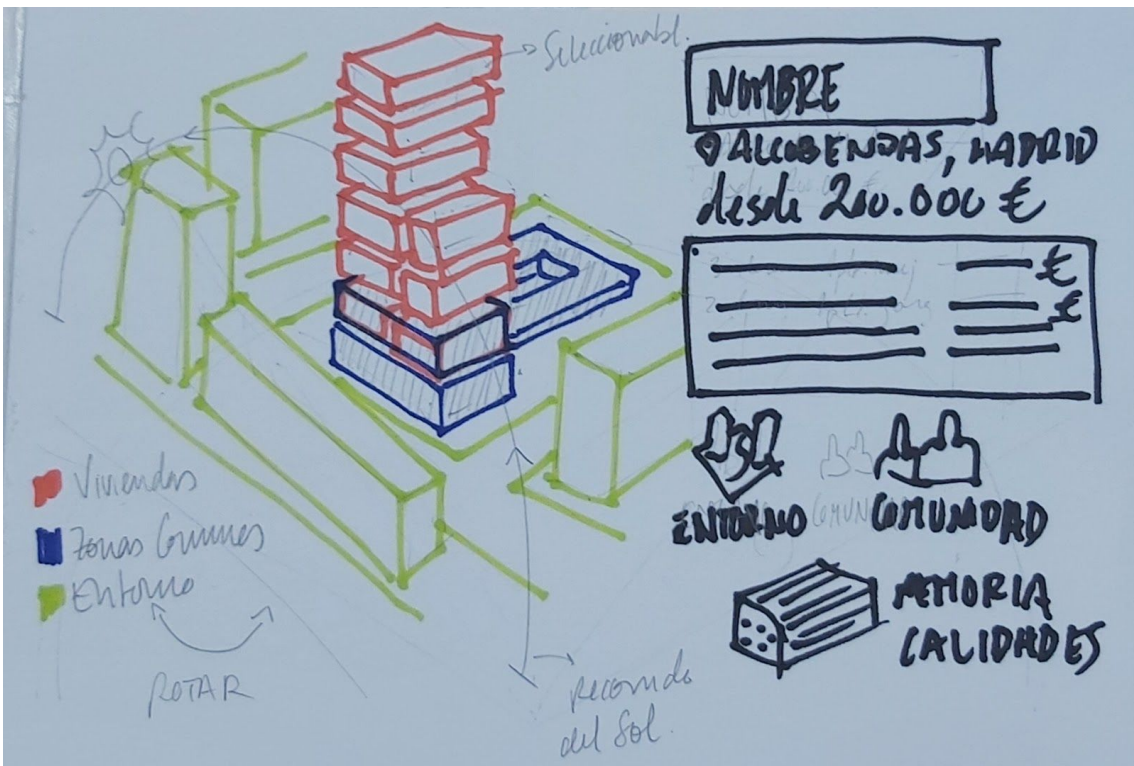 Seleccionabl.
NOMBRE
ALCOBENDAS, MADRID
desde 200.000 €
€
€
ENTORNO
COMUNIDAD
MEMORIA
CALIDADES
Viviendas
Zonas Comunes
Entorno
ROTAR
Recorrido
del Sol.